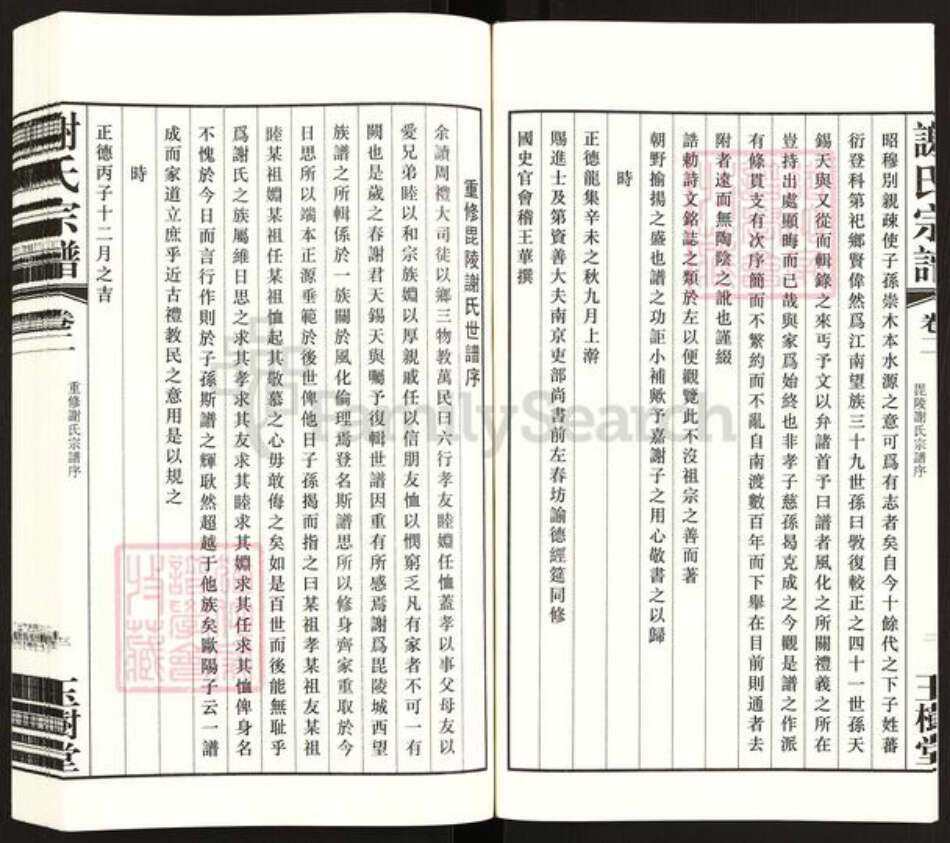 謝氏宗譜
卷二
毘陵謝氏宗譜序
玉樹堂
昭穆別親疎使子孫崇木本水源之意可爲有志者矣自今十餘代之下子姓蕃
衍登科第祀鄉賢偉然爲江南望族三十九世孫曰斅復較正之四十一世孫天
錫天與又從而輯錄之來丐予文以弁諸首予曰譜者風化之所關禮義之所在
豈持出處顯晦而已哉與家爲始終也非孝子慈孫曷克成之今觀是譜之作派
有條貫支有次序簡而不繁約而不亂自南渡數百年而下舉在目前則通者去
附者遠而無陶陰之訛也謹綴
誥勅詩文銘誌之類於左以便觀覽此不沒祖宗之善而著
朝野揄揚之盛也譜之功詎小補歟予嘉謝子之用心敬書之以歸
時
正德龍集辛未之秋九月上澣
賜進士及第資善大夫南京吏部尚書前左春坊諭德經筵同修
國史官會稽王華撰
重修毘陵謝氏世譜序
余讀周禮大司徒以鄉三物教萬民曰六行孝友睦婣任恤蓋孝以事父母友以
愛兄弟睦以和宗族婣以厚親戚任以信朋友恤以憫窮乏凡有家者不可一有
闕也是歲之春謝君天錫天與囑予復輯世譜因重有所感焉謝爲毘陵城西望
族譜之所輯係於一族關於風化倫理焉登名斯譜思所以修身齊家重取於今
日思所以端本正源垂範於後世俾他日子孫揭而指之曰某祖孝某祖友某祖
睦某祖婣某祖任某祖恤起其敬慕之心毋敢侮之矣如是百世而後能無耻乎
爲謝氏之族屬維日思之求其孝求其友求其睦求其婣求其任求其恤俾身名
不愧於今日而言行作則於子孫斯譜之輝耿然超越于他族矣歐陽子云一譜
成而家道立庶乎近古禮教民之意用是以規之
時
正德丙子十二月之吉
謝氏宗譜
卷二
重修謝氏宗譜序
玉樹堂
FamilySearch